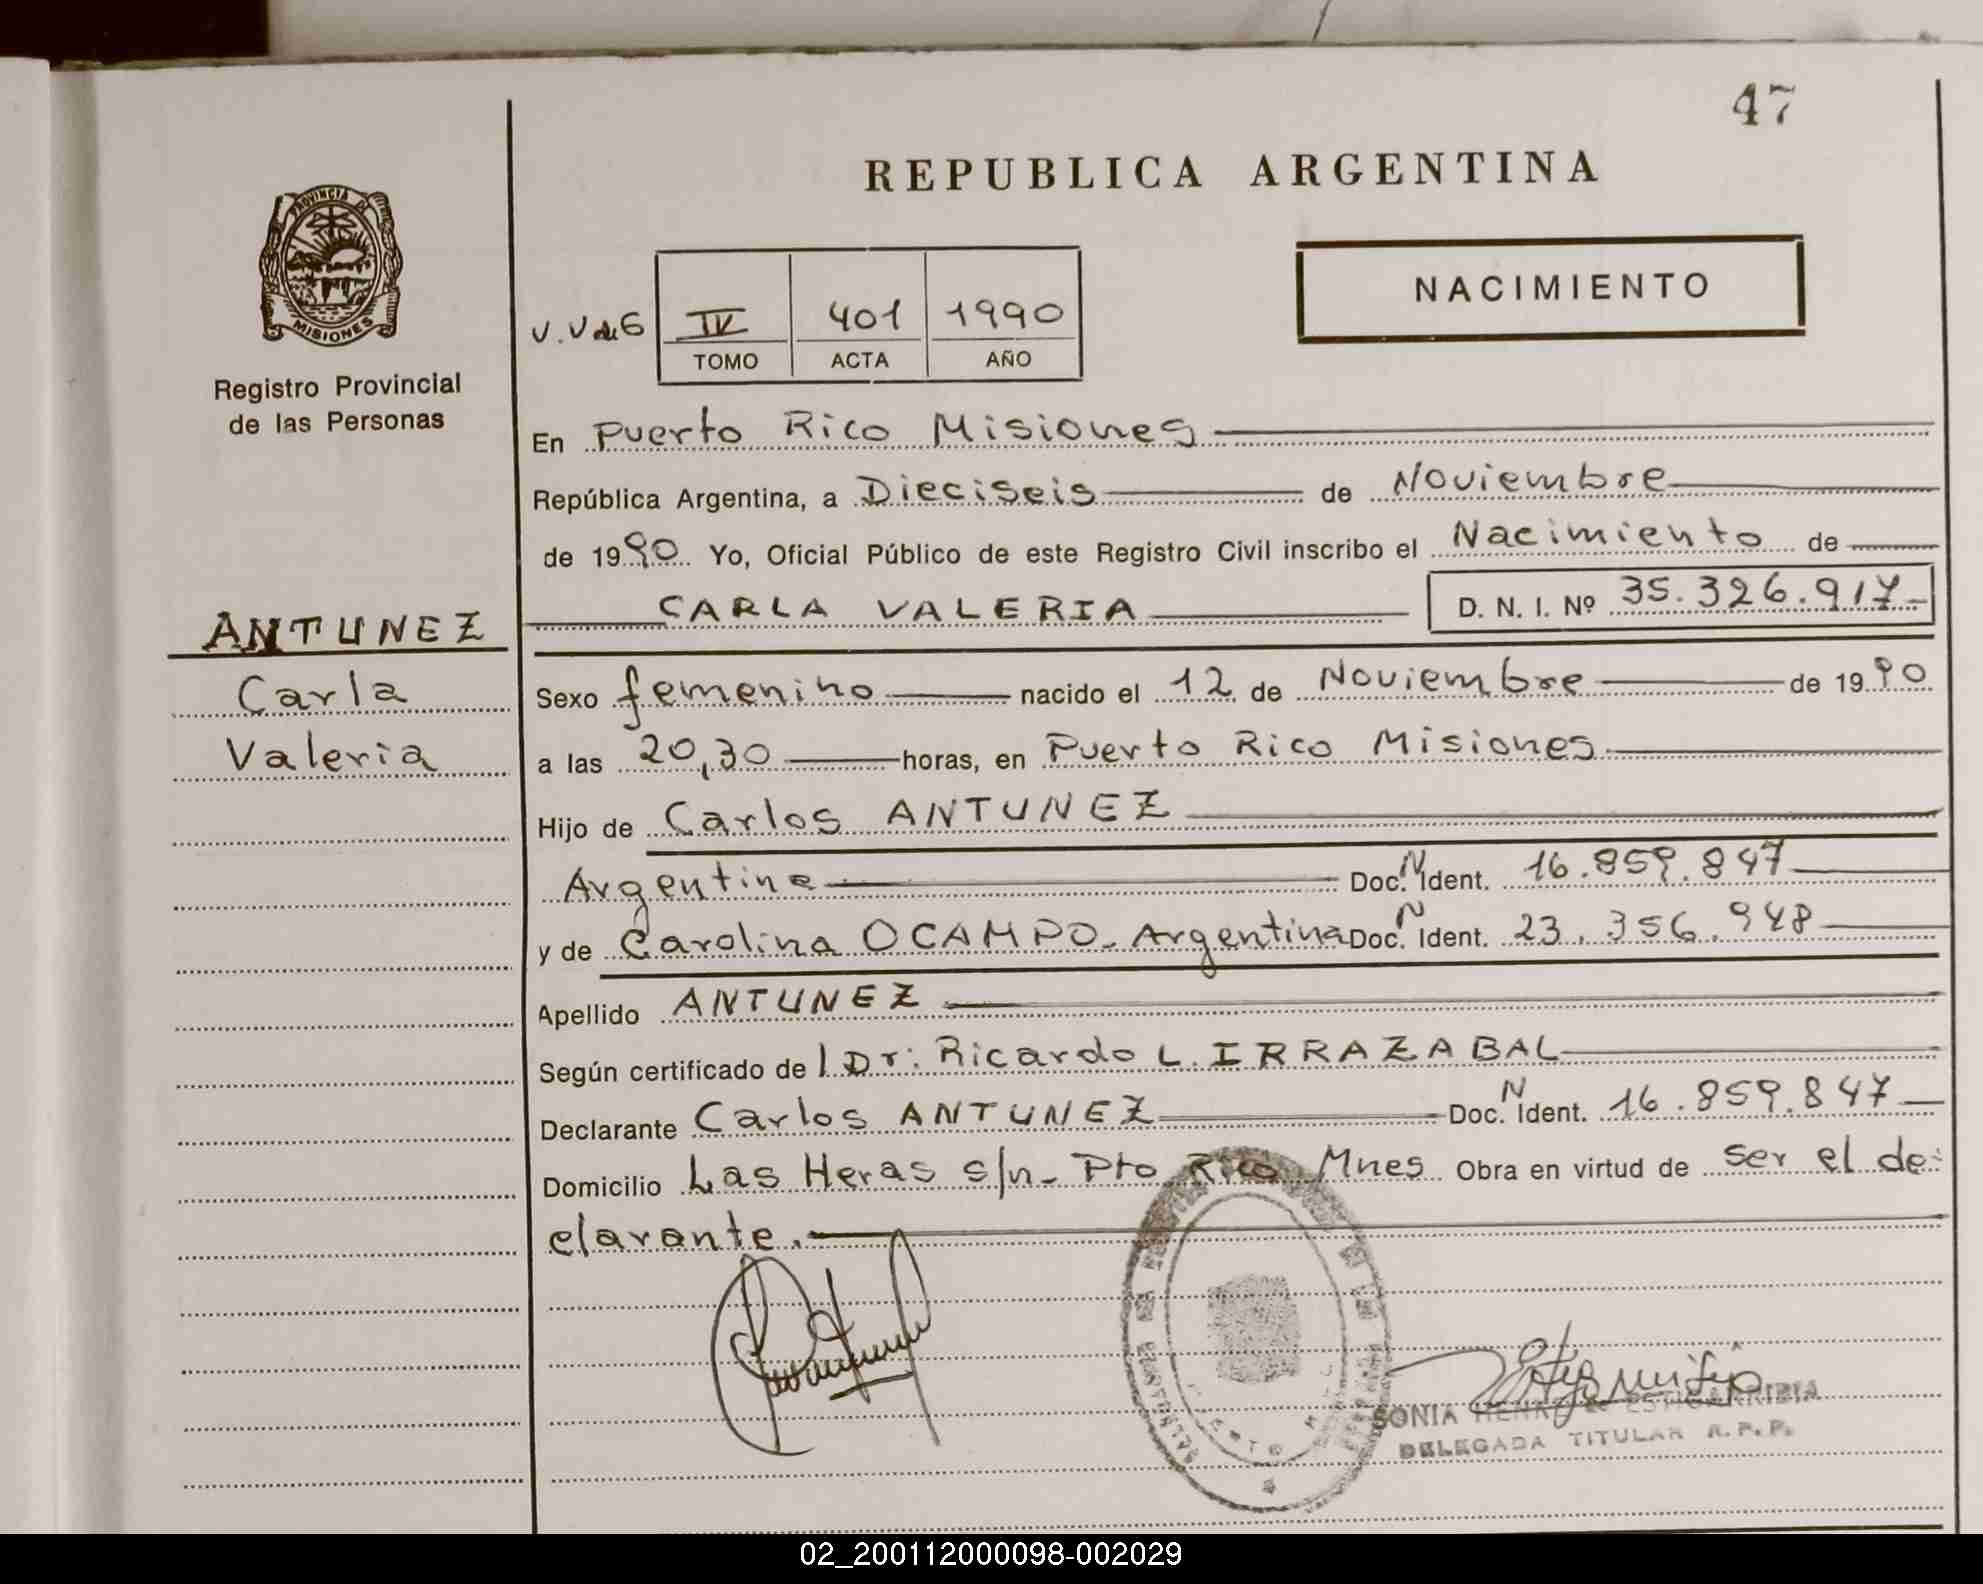 47
REPUBLICA ARGENTINA
PROVINCIA DE
MISIONES
Registro Provincial
de las Personas
NACIMIENTO
V. V de 6
IV 401 1990
TOMO ACTA AÑO
En Puerto Rico Misiones
República Argentina, a Dieciseis de Noviembre
de 1990 Yo, Oficial Público de este Registro Civil inscribo el Nacimiento de
CARLA VALERIA D. N. I. Nº 35.326.917
ANTUNEZ
Carla
Valeria
Sexo femenino nacido el 12 de Noviembre de 1990
a las 20,30 horas, en Puerto Rico Misiones
Hijo de Carlos ANTUNEZ
Argentino Doc. N Ident. 16.859.847
y de Carolina OCAMPO - Argentina Doc. N Ident. 23.356.948
Apellido ANTUNEZ
Según certificado de Dr: Ricardo L. IRRAZABAL
Declarante Carlos ANTUNEZ Doc. N Ident. 16.859.847
Domicilio Las Heras s/n - Pto Rico Mnes Obra en virtud de ser el de-
clarante.
SONIA
DELEGADA TITULAR R.P.P.
02_200112000098-002029